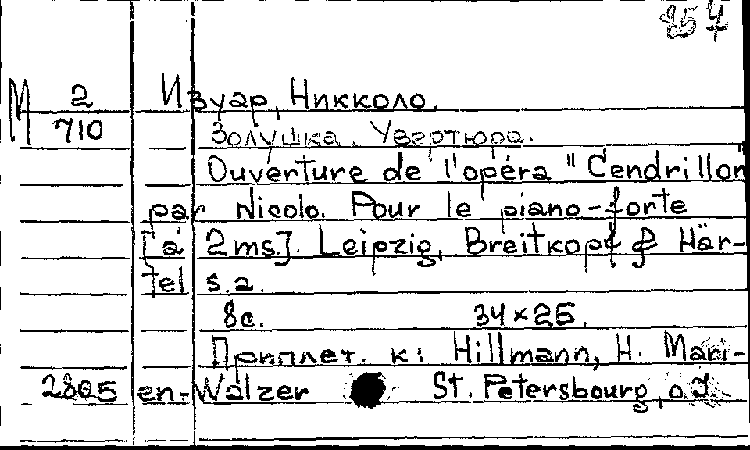 857
М 2 Изуар, Никколо.
710 Золушка. Увертюра.
Ouverture de l'opéra "Cendrillon
par Nicolo. Pour le piano-forte
[à 2ms]. Leipzig, Breitkopf & Här-
tel s.a.
8c. 34×25.
Приплет. к: Hillmann, H. Mari-
2805 en-Walzer St. Petersbourg, o.J.